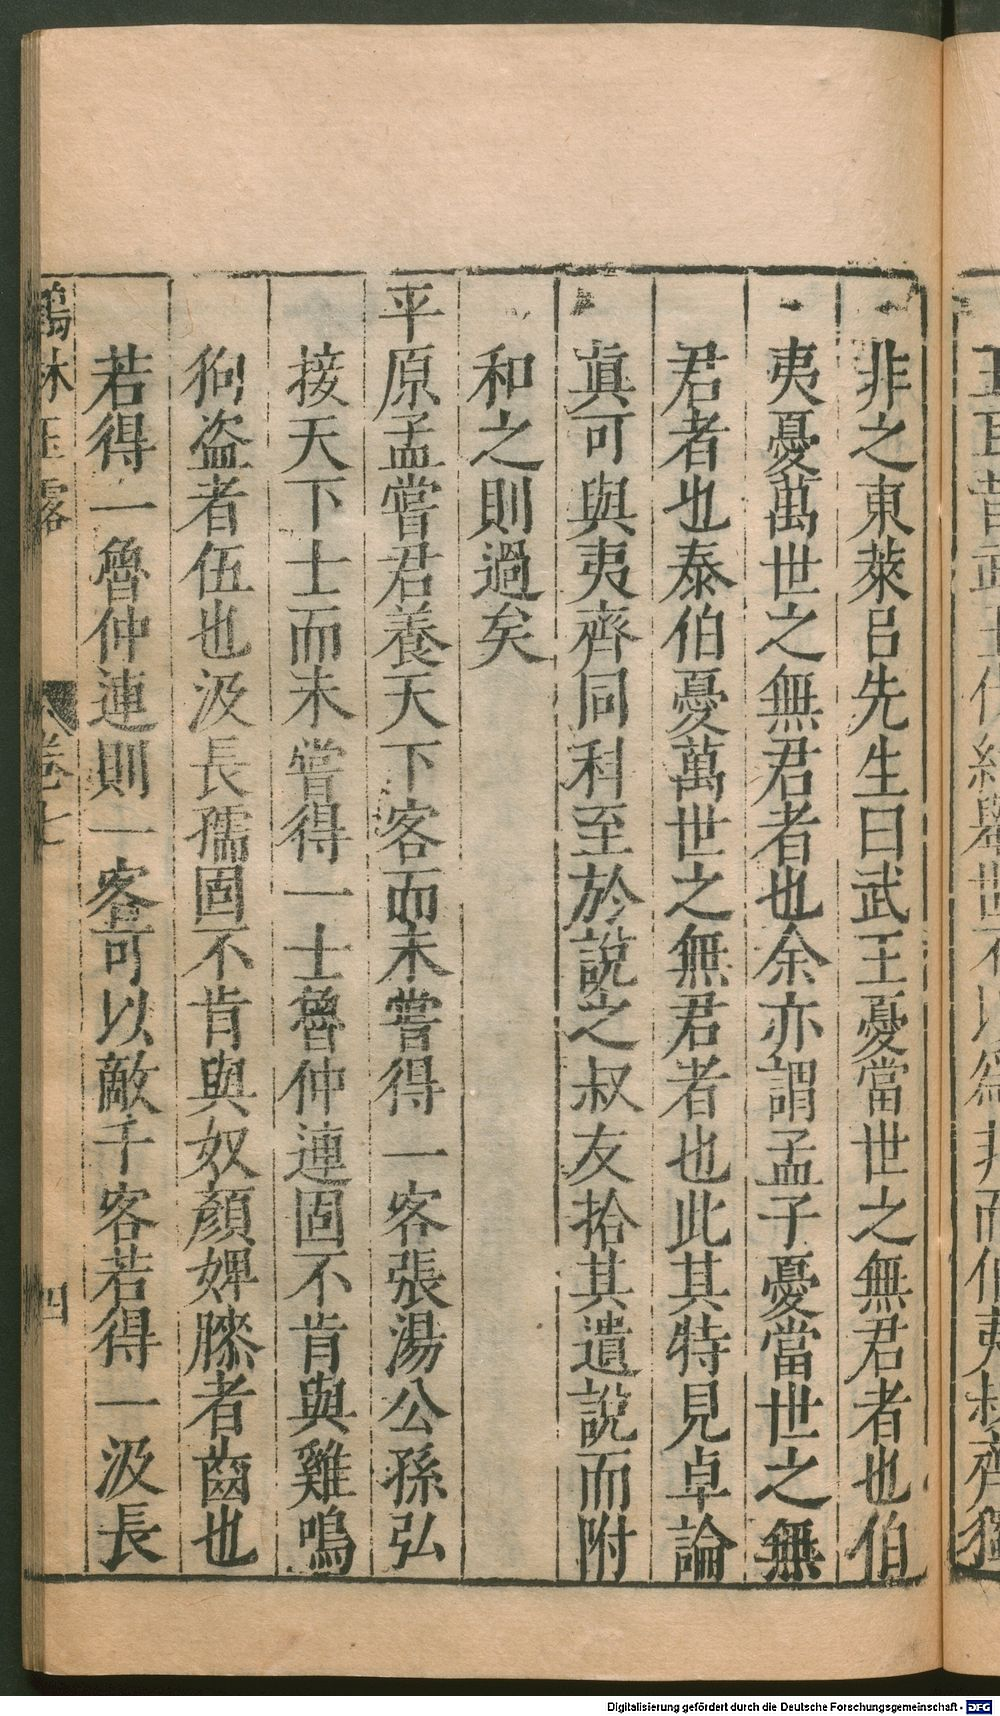 非之東萊呂先生曰武王憂當世之無君者也伯
夷憂萬世之無君者也余亦謂孟子憂當世之無
君者也泰伯憂萬世之無君者也此其特見卓論
眞可與夷齊同科至於說之叔友拾其遺說而附
和之則過矣
平原孟嘗君養天下客而未嘗得一客張湯公孫弘
接天下士而未嘗得一士魯仲連固不肯與雞鳴
狗盗者伍也汲長孺固不肯與奴顏婢膝者齒也
若得一魯仲連則一客可以敵千客若得一汲長
鶴林玉露 卷七 四
Digitalisierung gefördert durch die Deutsche Forschungsgemeinschaft - DFG